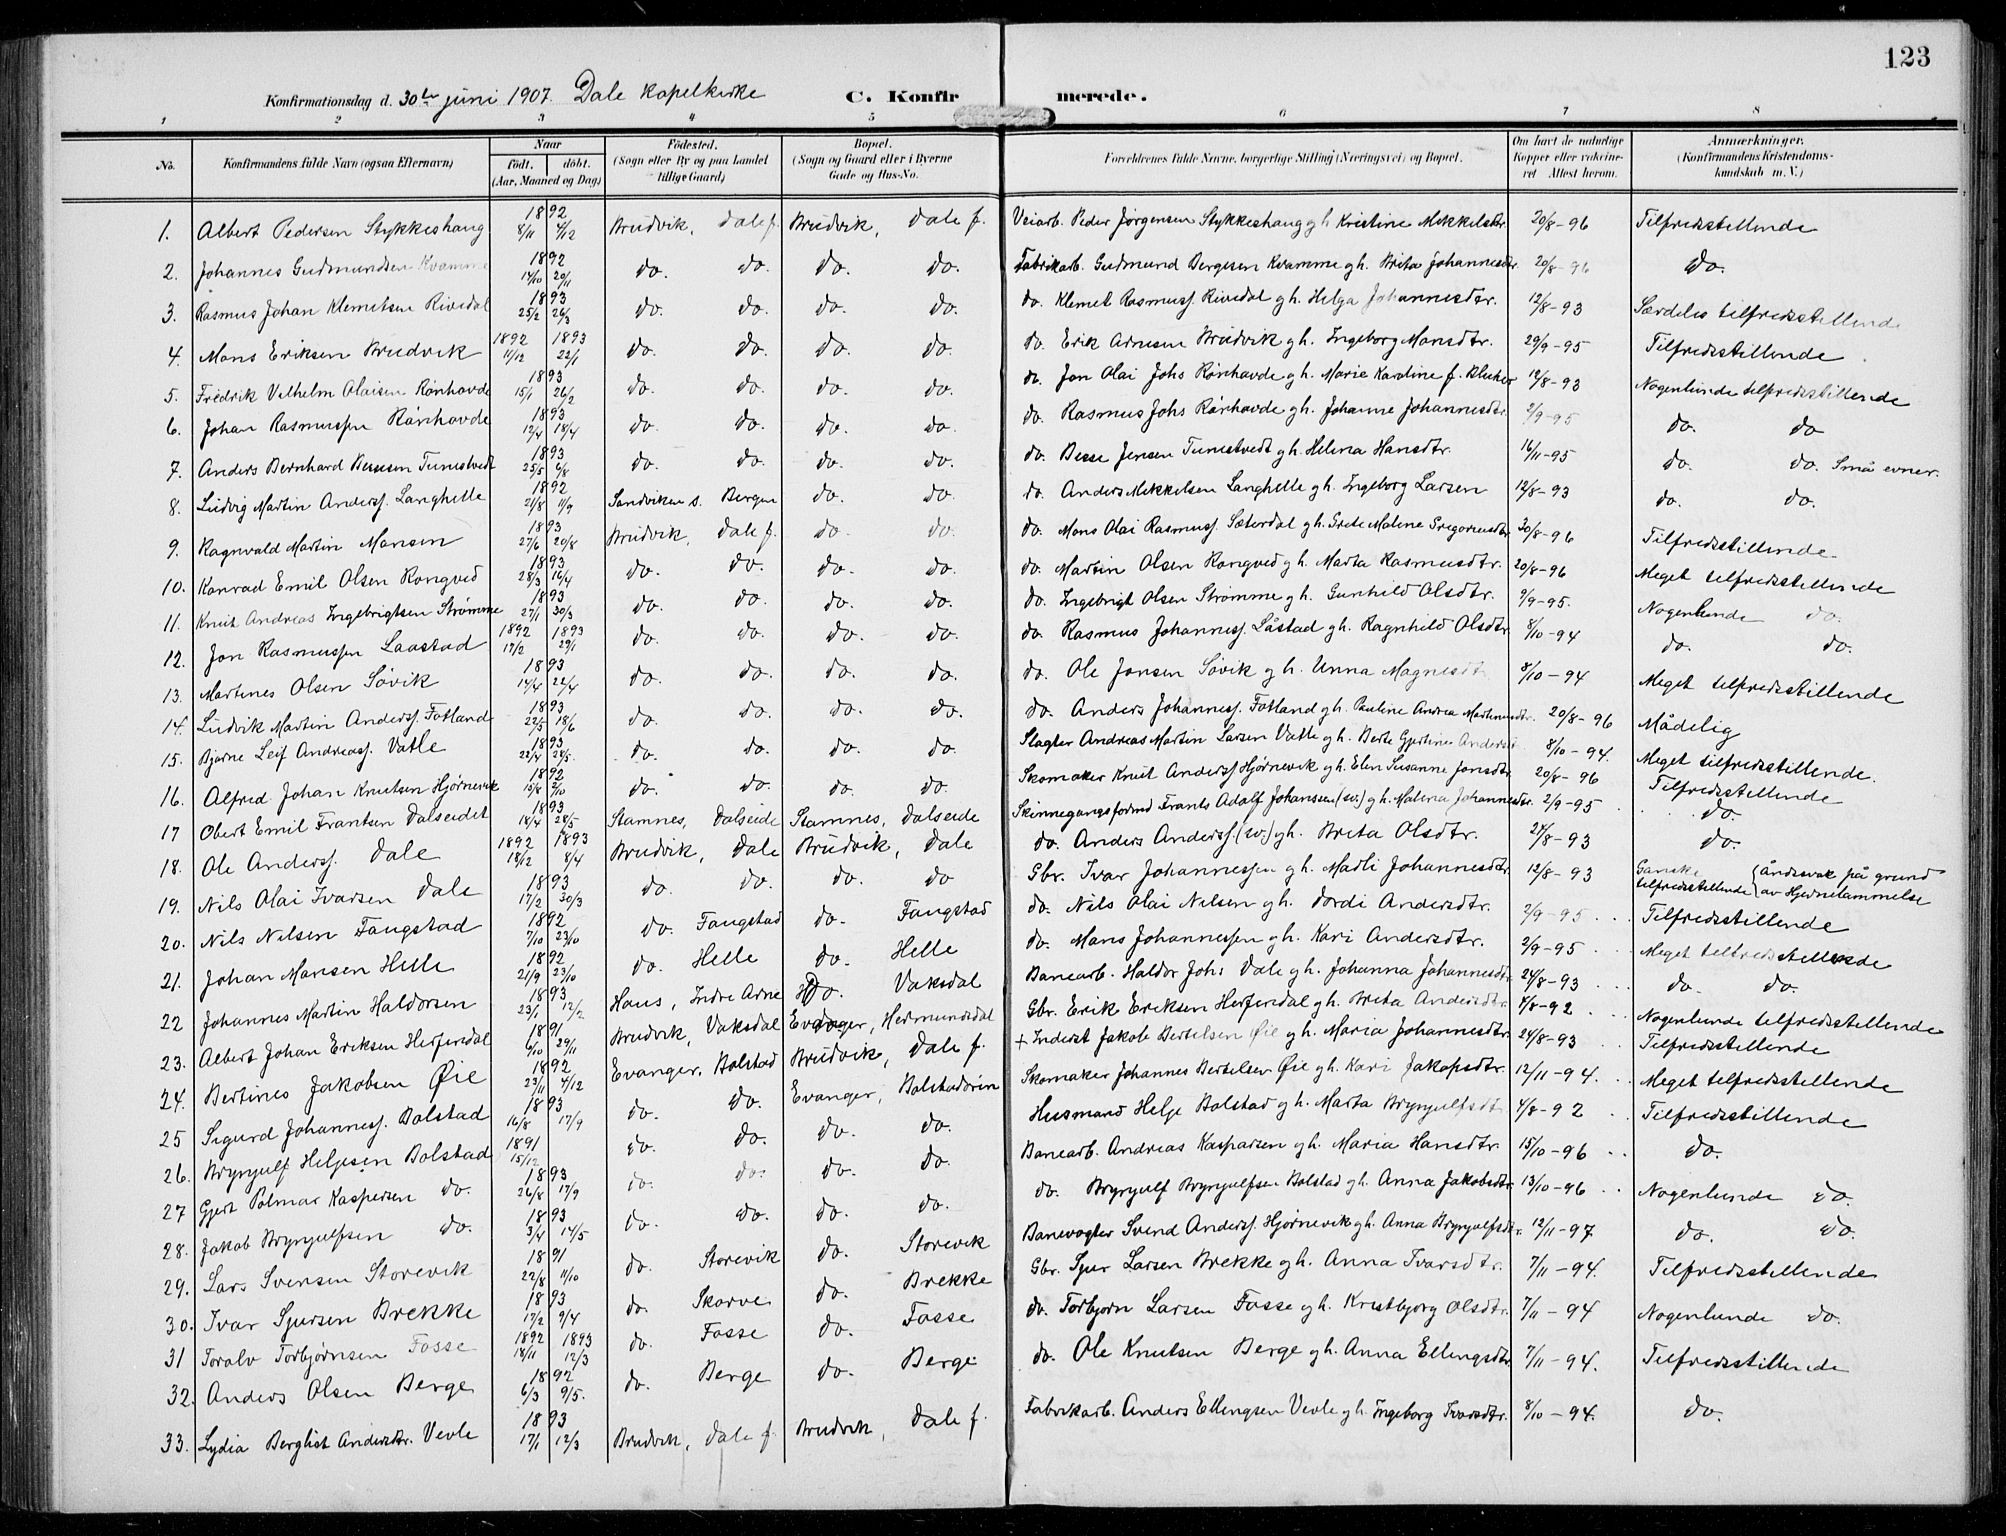 123
Konfirmationsdag d. 30te juni 1907. Dale kapelkirke C. Konfirmerede.
1 2 3 4 5 6 7 8
No. Konfirmandens fulde Navn (ogsaa Efternavn) Naar født. døbt. (Aar, Maaned og Dag) Fødested. (Sogn eller By og paa Landet tillige Gaard) Bopæl. (Sogn og Gaard eller i Byerne Gade og Hus-No. Forældrenes fulde Navne, borgerlige Stilling (Næringsvei) og Bopæl. Om havt de naturlige Kopper eller vaccineret Attest herom. Anmærkninger. (Konfirmandens Kristendomskundskab m. V.)
1. Albert Pedersen Stykkeshaug 1892 8/11 4/12 Brudvik, Dale f. Brudvik, Dale f. Veiarb. Peder Jørgensen Stykkeshaug g h Kristine Mikkelsdtr. 20/8-96 Tilfredsstillende
2. Johannes Gudmundsen Kvamme 1892 14/10 20/11 do. do. do. do. Fabrikarb. Gudmund Bergesen Kvamme g h. Brita Johannesdtr. 20/8-96 do.
3. Rasmus Johan Klemetsen Rivedal 1893 25/2 26/3 do. do. do. do. do. Klemet Rasmuss. Rivedal g h. Helga Johannesdtr. 12/8-93 Særdeles tilfredsstillende
4. Mons Eriksen Brudvik 1892 11/12 1893 22/1 do. do. do. do. do. Erik Arnesen Brudvik g h. Ingeborg Monsdtr. 29/9-95 Tilfredsstillende
5. Fredrik Vilhelm Olaisen Rønhovde 1893 15/1 26/2 do. do. do. do. do. Jon Olai Johs Rønhovde g h. Marie Karoline f. 12/8-93 Nogenlunde tilfredsstillende
6. Johan Rasmussen Rønhovde 1893 12/4 18/4 do. do. do. do. do. Rasmus Johs Rønhovde g h. Johanne Johannesdtr. 2/9-95 do. do
7. Anders Bernhard Bessesen Tunestvedt 1893 25/5 6/8 do. do. do. do. do. Besse Jensen Tunestvedt g h. Helena Hansdtr. 16/11-95 do. do. Små evner.
8. Ludvig Martin Anderss. Langhelle 1892 21/8 11/9 Sandviken s. Bergen do. do. do. Anders Mikkelsen Langhelle g h. Ingeborg Larsen 12/8-93 do. do.
9. Ragnvald Martin Monsen 1893 27/6 20/8 Brudvik, Dale f. do do. do. Mons Olai Rasmuss. Sæterdal g h. Grete Malene Gregoriusdtr. 30/8-96 Tilfredsstillende
10. Konrad Emil Olsen Rongved 1893 28/3 16/4 do. do. do. do. do. Martin Olsen Rongved g h. Marta Rasmusdtr. 20/8-96 Meget tilfredsstillende
11. Knut Andreas Ingebrigtsen Strømme 1893 27/1 30/3 do. do. do. do. do. Ingebrigt Olsen Strømme g h. Gunhild Olsdtr. 2/9-95. Nogenlunde do.
12. Jon Rasmussen Laastad 1892 17/2 1893 29/1 do. do. do. do. do. Rasmus Johanness. Låstad g h. Ragnhild Olsdtr. 8/10-94 do. do.
13. Martines Olsen Søvik 1893 14/4 22/4 do. do. do. do. do. Ole Jonsen Søvik g h. Unna Magnesdt 8/10-94 Meget tilfredsstillende
14. Ludvik Martin Anderss. Fotland 1893 22/5 18/6 do. do. do. do. do. Anders Johanness. Fotland g h. Pauline Andrea Martinusdtr. 20/8-96 Mådelig
15. Bjarne Leif Andreass. Vatle 1893 22/4 28/5. do. do. do. do. Slagter Andreas Martin Larsen Vatle g h. Berte Gjertine Andersdt 8/10-94. Meget tilfredsstillende.
16. Alfred Johan Knutsen Hjørnevik 1892 15/8 2/10 do. do. do. do. Skomaker Knut Anderss Hjørnevik g h. Elen Susanne Jonsdtr. 20/8-96 Tilfredsstillende
17 Obert Emil Frantsen Dalseidet 1893 18/4 28/5 Stamnes, Dalseide Stamnes, Dalseide Skinnegangsformd Frants Adolf Johanssen (sv.) g h. Malena Johannesdtr. 2/9-95 do.
18. Ole Anderss. Dale 1892 18/12 1893 8/4 Brudvik, Dale Brudvik, Dale do. Anders Anderss. (sv.) g h. Brita Olsdtr. 27/8-93 do.
19. Nils Olai Ivarsen Dale 1893 17/2 30/3 do. do. do. do Gbr. Ivar Johannessen g h. Madli Johannesdtr. 12/8-93 Ganske tilfredsstillende (åndssvak på grund av Hjernelammelse
20. Nils Nilsen Fangstad 1892 7/10 23/10 do. Fangstad do. Fangstad do. Nils Olai Nilsen g h. Dordi Andersdtr. 2/9-95 Tilfredsstillende
21. Johan Monsen Helle 1892 21/9 23/10 do. Helle do. Helle do. Mons Johannessen g h. Kari Andersdtr. 2/9-95 Meget tilfredsstillende
22 Johannes Martin Haldorsen 1893 23/1 12/2 Haus, Indre Arne do. Vaksdal Banearb. Haldor Johs Dale g h. Johanna Johannesdtr. 24/8-93 do. do.
23. Albert Johan Eriksen Herfindal 1891 6/10 29/11 Brudvik, Vaksdal Evanger, Hermundsdal Gbr. Erik Eriksen Herfindal g h. Brita Andersdtr. 4/8-92 Nogenlunde tilfredsstillende
24. Bertines Jakobsen Øie 1892 23/11 4/12 Evanger, Bolstad Brudvik, Dale f. + Inderst Jakob Bertelsen Øie g h. Maria Johannesdtr. 24/8-93 Tilfredsstillende
25 Sigurd Johanness. Bolstad 1893 16/8 17/9 do. do. Evanger, Bolstadøren Skomaker Johannes Bertelsen Øie g h. Kari Jakopsdtr. 12/11-94. Meget tilfredsstillende
26. Brynjulf Helgesen Bolstad 1891 15/12 do. do. do. do. Husmand Helje Bolstad g h. Marta Brynjulfsdt 4/8-92 Tilfredsstillende
27 Gjert Polmar Kaspersen do. 1893 26/8 17/9 do. do. do. do. Banearb. Andreas Kaspersen g h. Maria Hansdtr. 15/10-96 do.
28. Jakob Brynjulfsen do. 1893 3/4 14/5 do. do. do. do. do. Brynjulf Brynjulfsen Bolstad g h. Anna Jakobsdtr. 13/10-96 Nogenlunde do.
29. Lars Svensen Storevik 1891 22/8 11/10 do. Storevik do. Storevik Banevogter Svend Anderss. Hjørnevik g h. Anna Brynjulfsdtr. 12/11-97 do. do.
30. Ivar Sjursen Brekke 1893 17/2 9/4 do. Skorve do. Brekke Gbr. Sjur Larsen Brekke g h. Anna Ivarsdtr. 7/11-94. Tilfredsstillende
31 Toralv Torbjørnsen Fosse 1892 18/11 1893 12/3 do. Fosse do. Fosse do. Torbjørn Larsen Fosse g h. Kristbjørg Olsdtr. 7/11-94 Nogenlunde do.
32. Anders Olsen Berge 1892 6/3 9/5. do. Berge do. Berge do. Ole Knutsen Berge g h. Anna Ellingsdtr. 7/11-94. Tilfredsstillende
33. Lydia Bergliot Andersdtr. Vevle 1893 17/1 12/3 Brudvik, Dale f. Brudvik, Dale f. Fabrikarb. Anders Ellingsen Vevle g h. Ingeborg Ivarsdtr. 8/10-94. do.